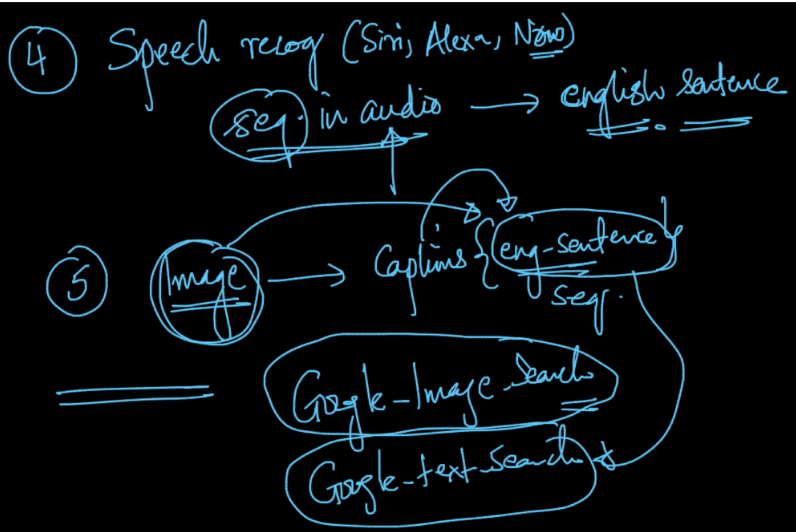 ④ Speech recog (Siri, Alexa, Now)
seq. in audio → english sentence
⑤ Image → Captions { eng-sentence }
seq.
Google-Image Search
Google-text-search